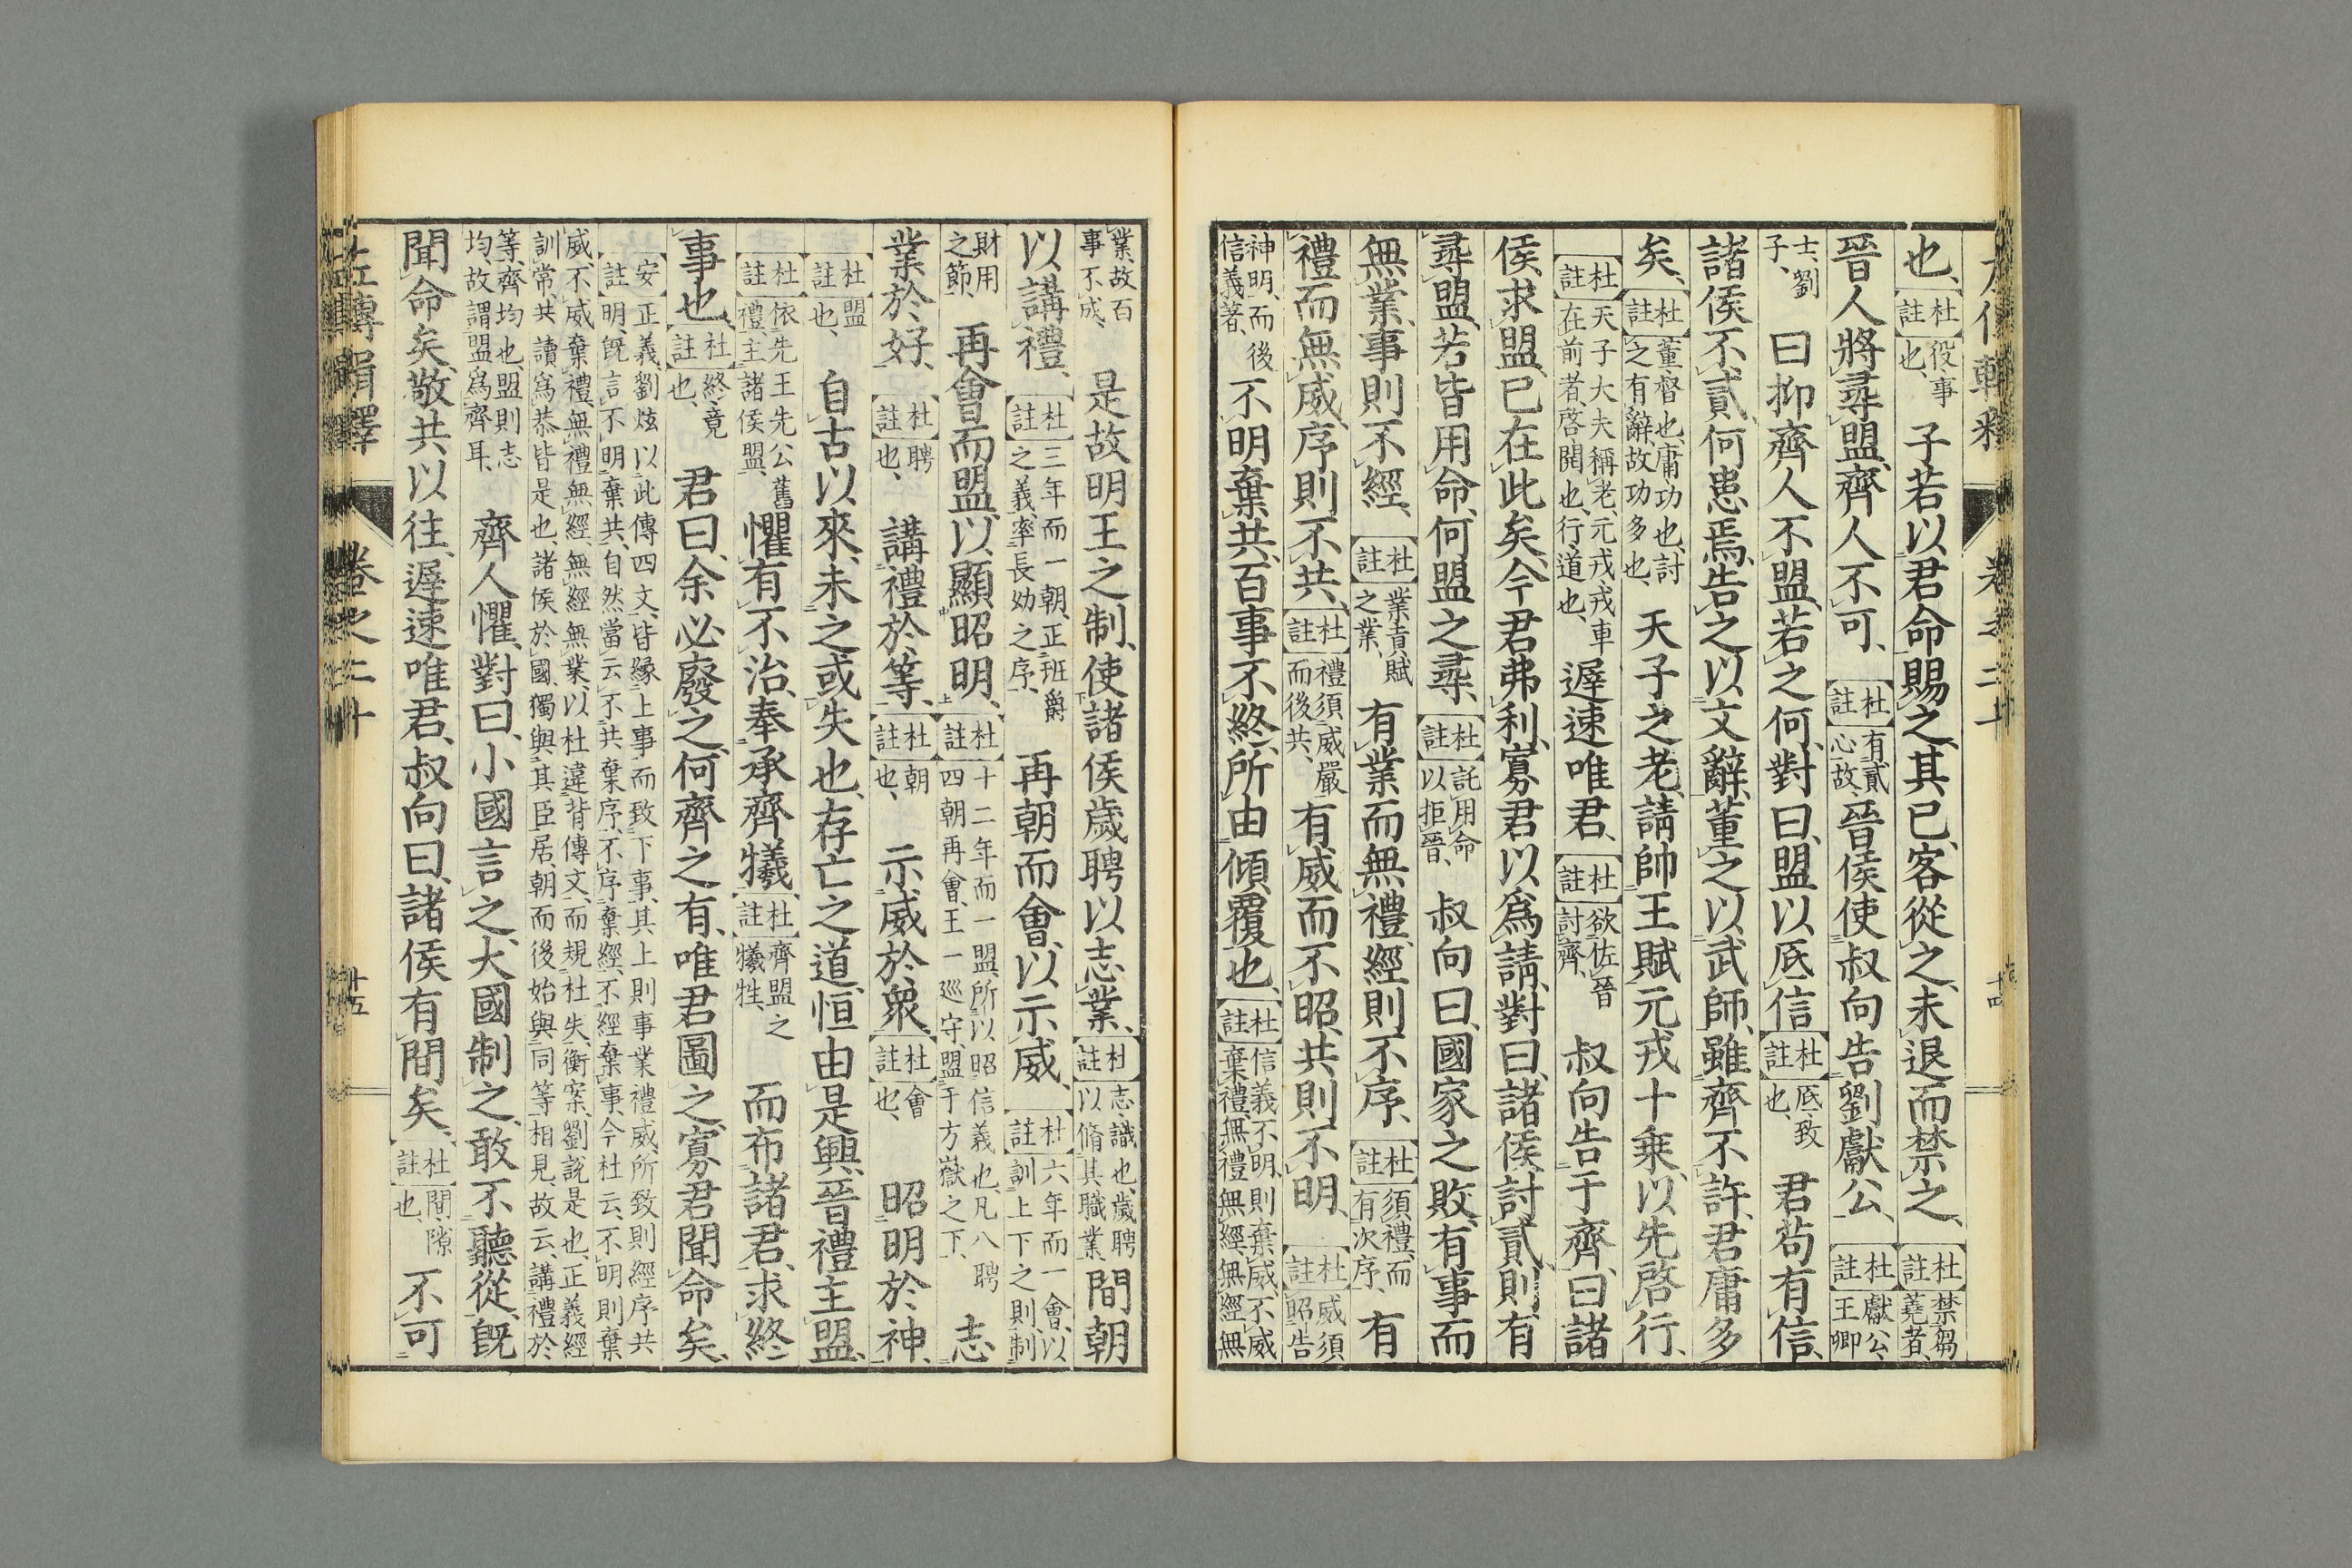 也、杜註役事也、子若以君命賜之、其已、客從之、未退而禁之、杜註禁芻蕘者、
晉人將尋盟、齊人不可、杜註有貳心故、晉侯使叔向告劉獻公、杜註獻公、王卿
士、劉子、曰抑齊人不盟、若之何、對曰、盟以底信、杜註底、致也、君苟有信、
諸侯不貳、何患焉、告之以文辭、董之以武師、雖齊不許、君庸多
矣、杜註董督也、庸功也、討之有辭、故功多也、天子之老、請帥王賦、元戎十乘、以先啓行、
杜註天子大夫稱老、元戎、戎車在前者、啓開也、行、道也、遲速唯君、杜註欲佐晉討齊、叔向告于齊、曰、諸
侯求盟、已在此矣、今君弗利、寡君以爲請、對曰、諸侯討貳、則有
尋盟、若皆用命、何盟之尋、杜註託用命以拒晉、叔向曰、國家之敗、有事而
無業、事則不經、杜註業貢賦之業、有業而無禮、經則不序、杜註須禮而有次序、有
禮而無威、序則不共、杜註禮須威嚴而後共、有威而不昭、共則不明、杜註威須昭告
神明、而後信義著、不明棄共、百事不終、所由傾覆也、杜註信義不明、則棄威、不威棄禮、無禮無經、無經無
業、故百事不成、是故明王之制、使諸侯歲聘以志業、杜註志、識也、歲聘以脩其職業、間朝
以講禮、杜註三年而一朝、正班爵之義、率長幼之序、再朝而會、以示威、杜註六年而一會、以訓上下之則、制
財用之節、再會而盟、以顯昭明、杜註十二年而一盟、所以昭信義也、凡八聘四朝再會、王一巡守、盟于方嶽之下、志
業於好、杜註聘也、講禮於等、杜註朝也、示威於衆、杜註會也、昭明於神、
杜註盟也、自古以來、未之或失也、存亡之道、恒由是興、晉禮主盟、
杜註依先王先公舊禮主諸侯盟、懼有不治、奉承齊犧、杜註齊盟之犧牲、而布諸君、求終
事也、杜註終、竟也、君曰、余必廢之、何齊之有、唯君圖之、寡君聞命矣、
安註正義劉炫以此傳四文、皆緣上事而致下事、其上則事業禮威、所致則經序共明、既言不明棄共、自然當云不共棄序、不序棄經、不經棄事、今杜云、不明則棄
威、不威棄禮、無禮無經、無經無業、以杜違背傳文、而規杜失、衡案、劉說是也、正義經訓常、共讀爲恭、皆是也、諸侯於國、獨與其臣居、朝而後始與同等相見、故云、講禮於
等、齊均也、盟則志均、故謂盟爲齊耳、齊人懼、對曰、小國言之、大國制之、敢不聽從、既
聞命矣、敬共以往、遲速唯君、叔向曰、諸侯有間矣、杜註間、隙也、不可
左傳輯釋 卷之二十 十五